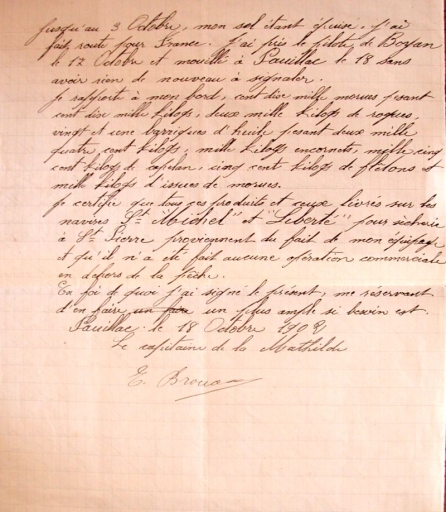 jusqu'au 3 Octobre, mon sel étant épuisé. J'ai
fait route pour France. J'ai pris le pilote de Royan
le 12 Octobre et mouillé à Pauillac le 18 sans
avoir rien de nouveau à signaler.
Je rapporte à mon bord, cent dix mille morues pesant
cent dix mille kilogs, deux mille kilogs de rogues,
vingt et une barriques d'huile pesant deux mille
quatre cent kilogs, mille kilogs encornets, mille cinq
cent kilogs de capelan, cinq cent kilogs de flétans et
mille kilogs d'issues de morues.
Je certifie que tous ces produits et ceux livrés sur les
navires "St Michel" et "Liberté" pour sécherie
à St Pierre proviennent du fait de mon équipage
et qu'il n'a été fait aucune opération commerciale
en dehors de la pêche.
En foi de quoi j'ai signé le présent, me réservant
d'en faire un plus ample si besoin est.
Pauillac le 18 Octobre 1902
Le capitaine de la Mathilde
E.